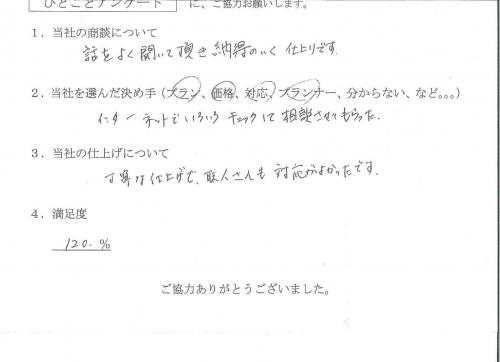 ひとことアンケート に、ご協力お願いします。
1．当社の商談について
話をよく聞いて頂き納得のいく仕上りです。
2．当社を選んだ決め手（プラン、価格、対応、プランナー、分からない、など。。。）
インターネットでいろいろチェックして相談させてもらった．
3．当社の仕上げについて
丁寧な仕上げで、職人さんも対応がよかったです．
4．満足度
120．％
ご協力ありがとうございました。